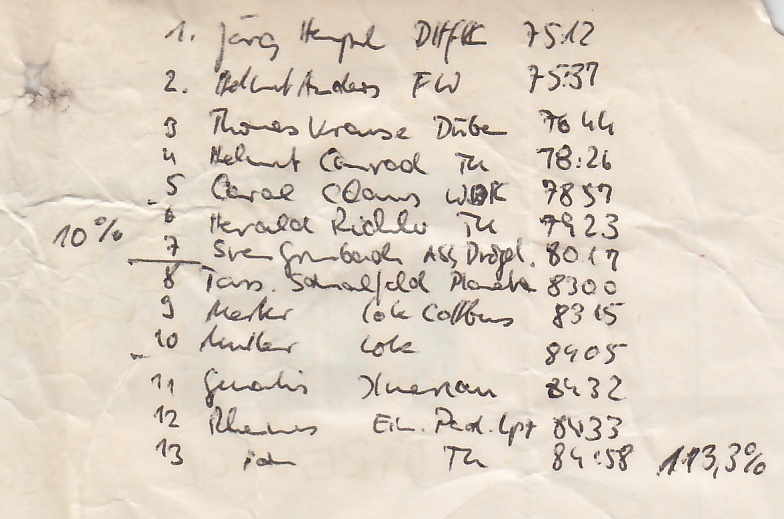 1. Jörg Hempel DHfK 75:12
2. Helmut Anders FW 75:37
3 Thomas Krause Düben 76 44
4 Helmut Conrad TH 78:26
5 Carol Claus 78 57
6 Herald Richter TH 79 23
10% 7 Sven Grumbach ASG 80 17
8 Schmalfeld 83 00
9 Merker Lok Cottbus 83 15
10 Müller Lok 84 05
11 Ilmenau 84 32
12 Päd. Lpz 84 33
13 TH 84:58 113,3%